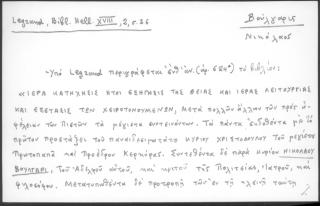 Legrand, Bibl. Hell. XVIII, 2, σ. 26
Βούλγαρις
Νικόλαος
Ὑπὸ Legrand περιγράφεται (ἀρ. 654) τὸ βιβλίον:
«ΙΕΡΑ ΚΑΤΗΧΗΣΙΣ ΗΤΟΙ ΕΞΗΓΗΣΙΣ ΤΗΣ ΘΕΙΑΣ ΚΑΙ ΙΕΡΑΣ ΛΕΙΤΟΥΡΓΙΑΣ
ΚΑΙ ΕΞΕΤΑΣΙΣ ΤΩΝ ΧΕΙΡΟΤΟΝΟΥΜΕΝΩΝ, μετὰ πολλῶν ἄλλων τῶν πρὸς ὠ-
φέλειαν τῶν Πιστῶν τὰ μέγιστα συντεινόντων. Τὰ πάντα ἐκδοθέντα
πρῶτον προστάξει τοῦ Πανοιδεσιμωτάτου ΚΥΡΙΟΥ ΧΡΙΣΤΟΔΟΥΛΟΥ τοῦ μεγίστου
Πρωτοπαπᾶ καὶ Προέδρου Κερκύρας. Συντεθέντα δὲ παρὰ κυρίου ΝΙΚΟΛΑΟΥ
ΒΟΥΛΓΑΡΙ, τοῦ ἀδελφοῦ αὐτοῦ, καὶ κριτοῦ τῆς Πολιτείας, ἰατροῦ, καὶ
φιλοσόφου. Μετατυπωθέντα δὲ προτροπῇ τῶν ἐν τῇ κλεινῇ ταύτῃ